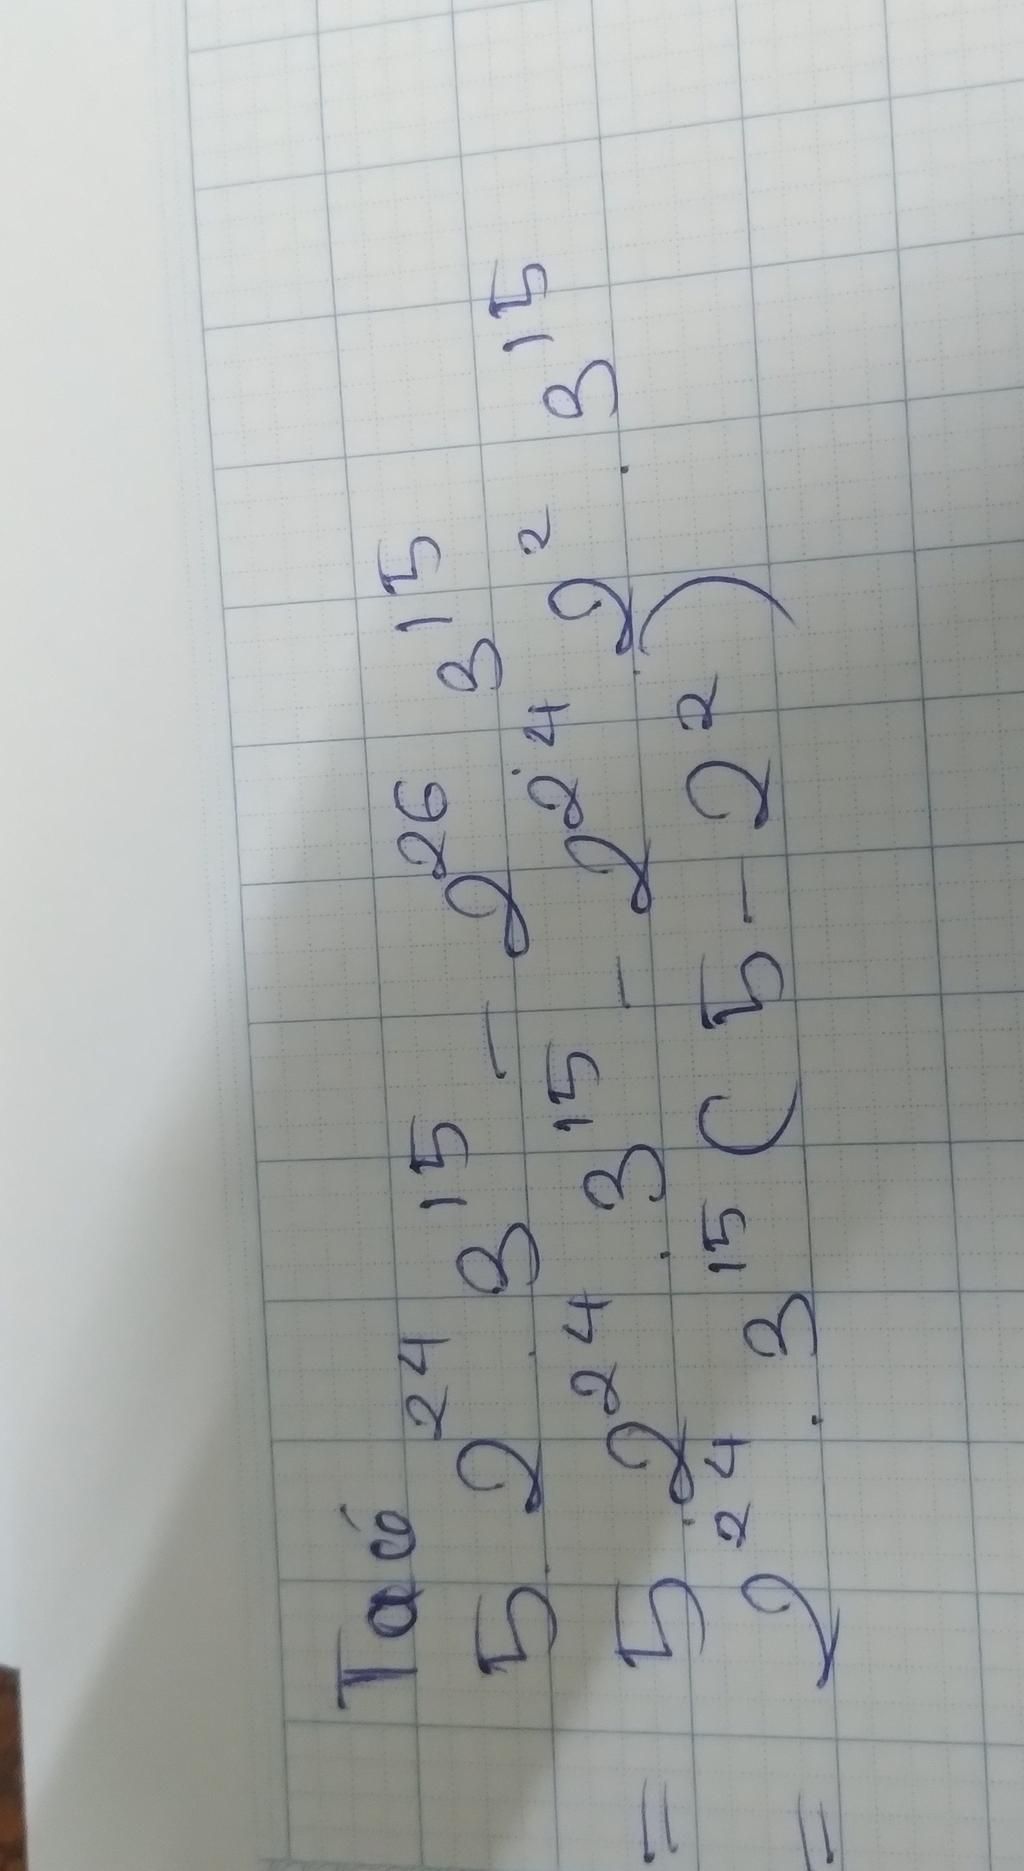 Ta có
5.2²⁴.3¹⁵ - 2²⁶ 3¹⁵
= 5.2²⁴.3¹⁵ - 2²⁴.2².3¹⁵
= 2²⁴.3¹⁵(5-2²)